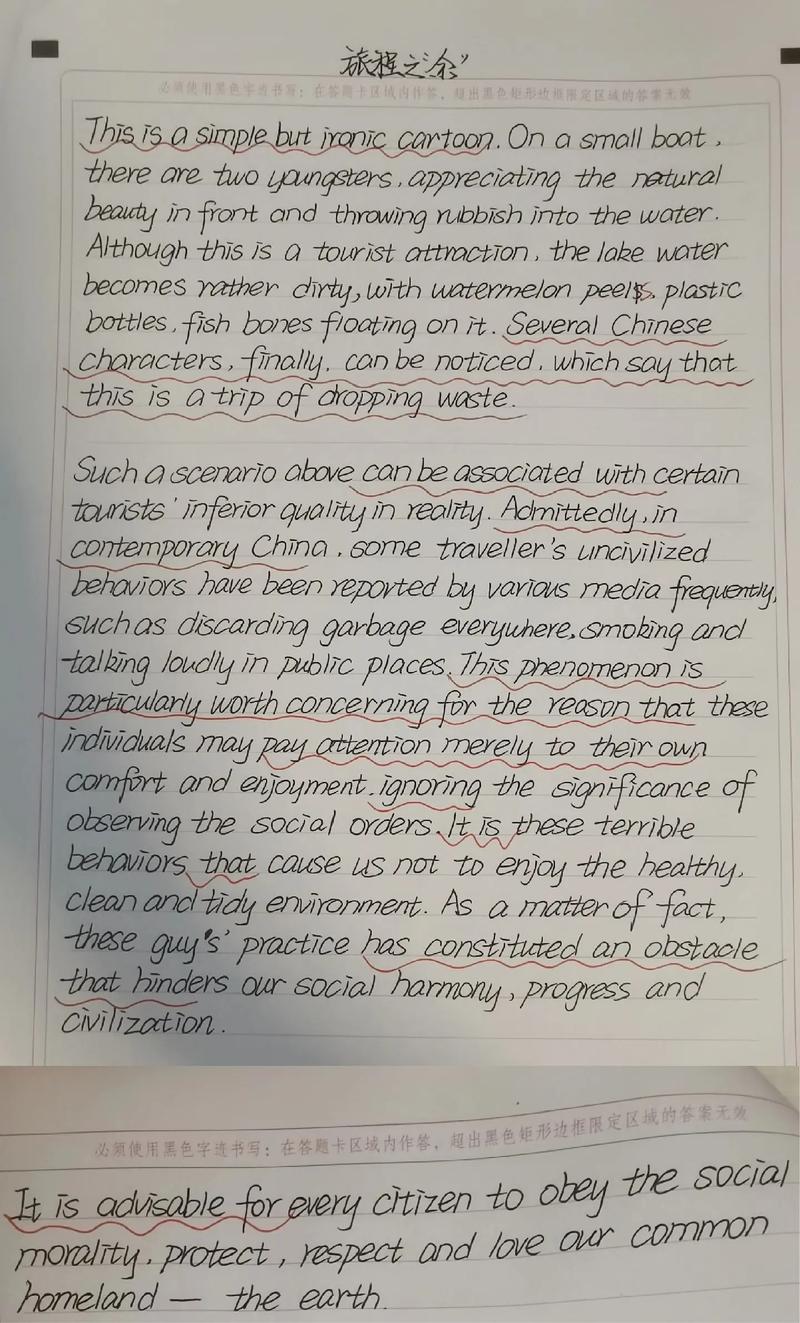 旅程之"余"
必须使用黑色字迹书写：在答题卡区域内作答，超出黑色矩形边框限定区域的答案无效
This is a simple but ironic cartoon. On a small boat,
there are two youngsters, appreciating the natural
beauty in front and throwing rubbish into the water.
Although this is a tourist attraction, the lake water
becomes rather dirty, with watermelon peels, plastic
bottles, fish bones floating on it. Several Chinese
characters, finally, can be noticed, which say that
this is a trip of dropping waste.
Such a scenario above can be associated with certain
tourists' inferior quality in reality. Admittedly, in
contemporary China, some traveller's uncivilized
behaviors have been reported by various media frequently,
such as discarding garbage everywhere, smoking and
talking loudly in public places. This phenomenon is
particularly worth concerning for the reason that these
individuals may pay attention merely to their own
comfort and enjoyment, ignoring the significance of
observing the social orders. It is these terrible
behaviors that cause us not to enjoy the healthy,
clean and tidy environment. As a matter of fact,
these guys' practice has constituted an obstacle
that hinders our social harmony, progress and
civilization.
必须使用黑色字迹书写：在答题卡区域内作答，超出黑色矩形边框限定区域的答案无效
It is advisable for every citizen to obey the social
morality, protect, respect and love our common
homeland — the earth.